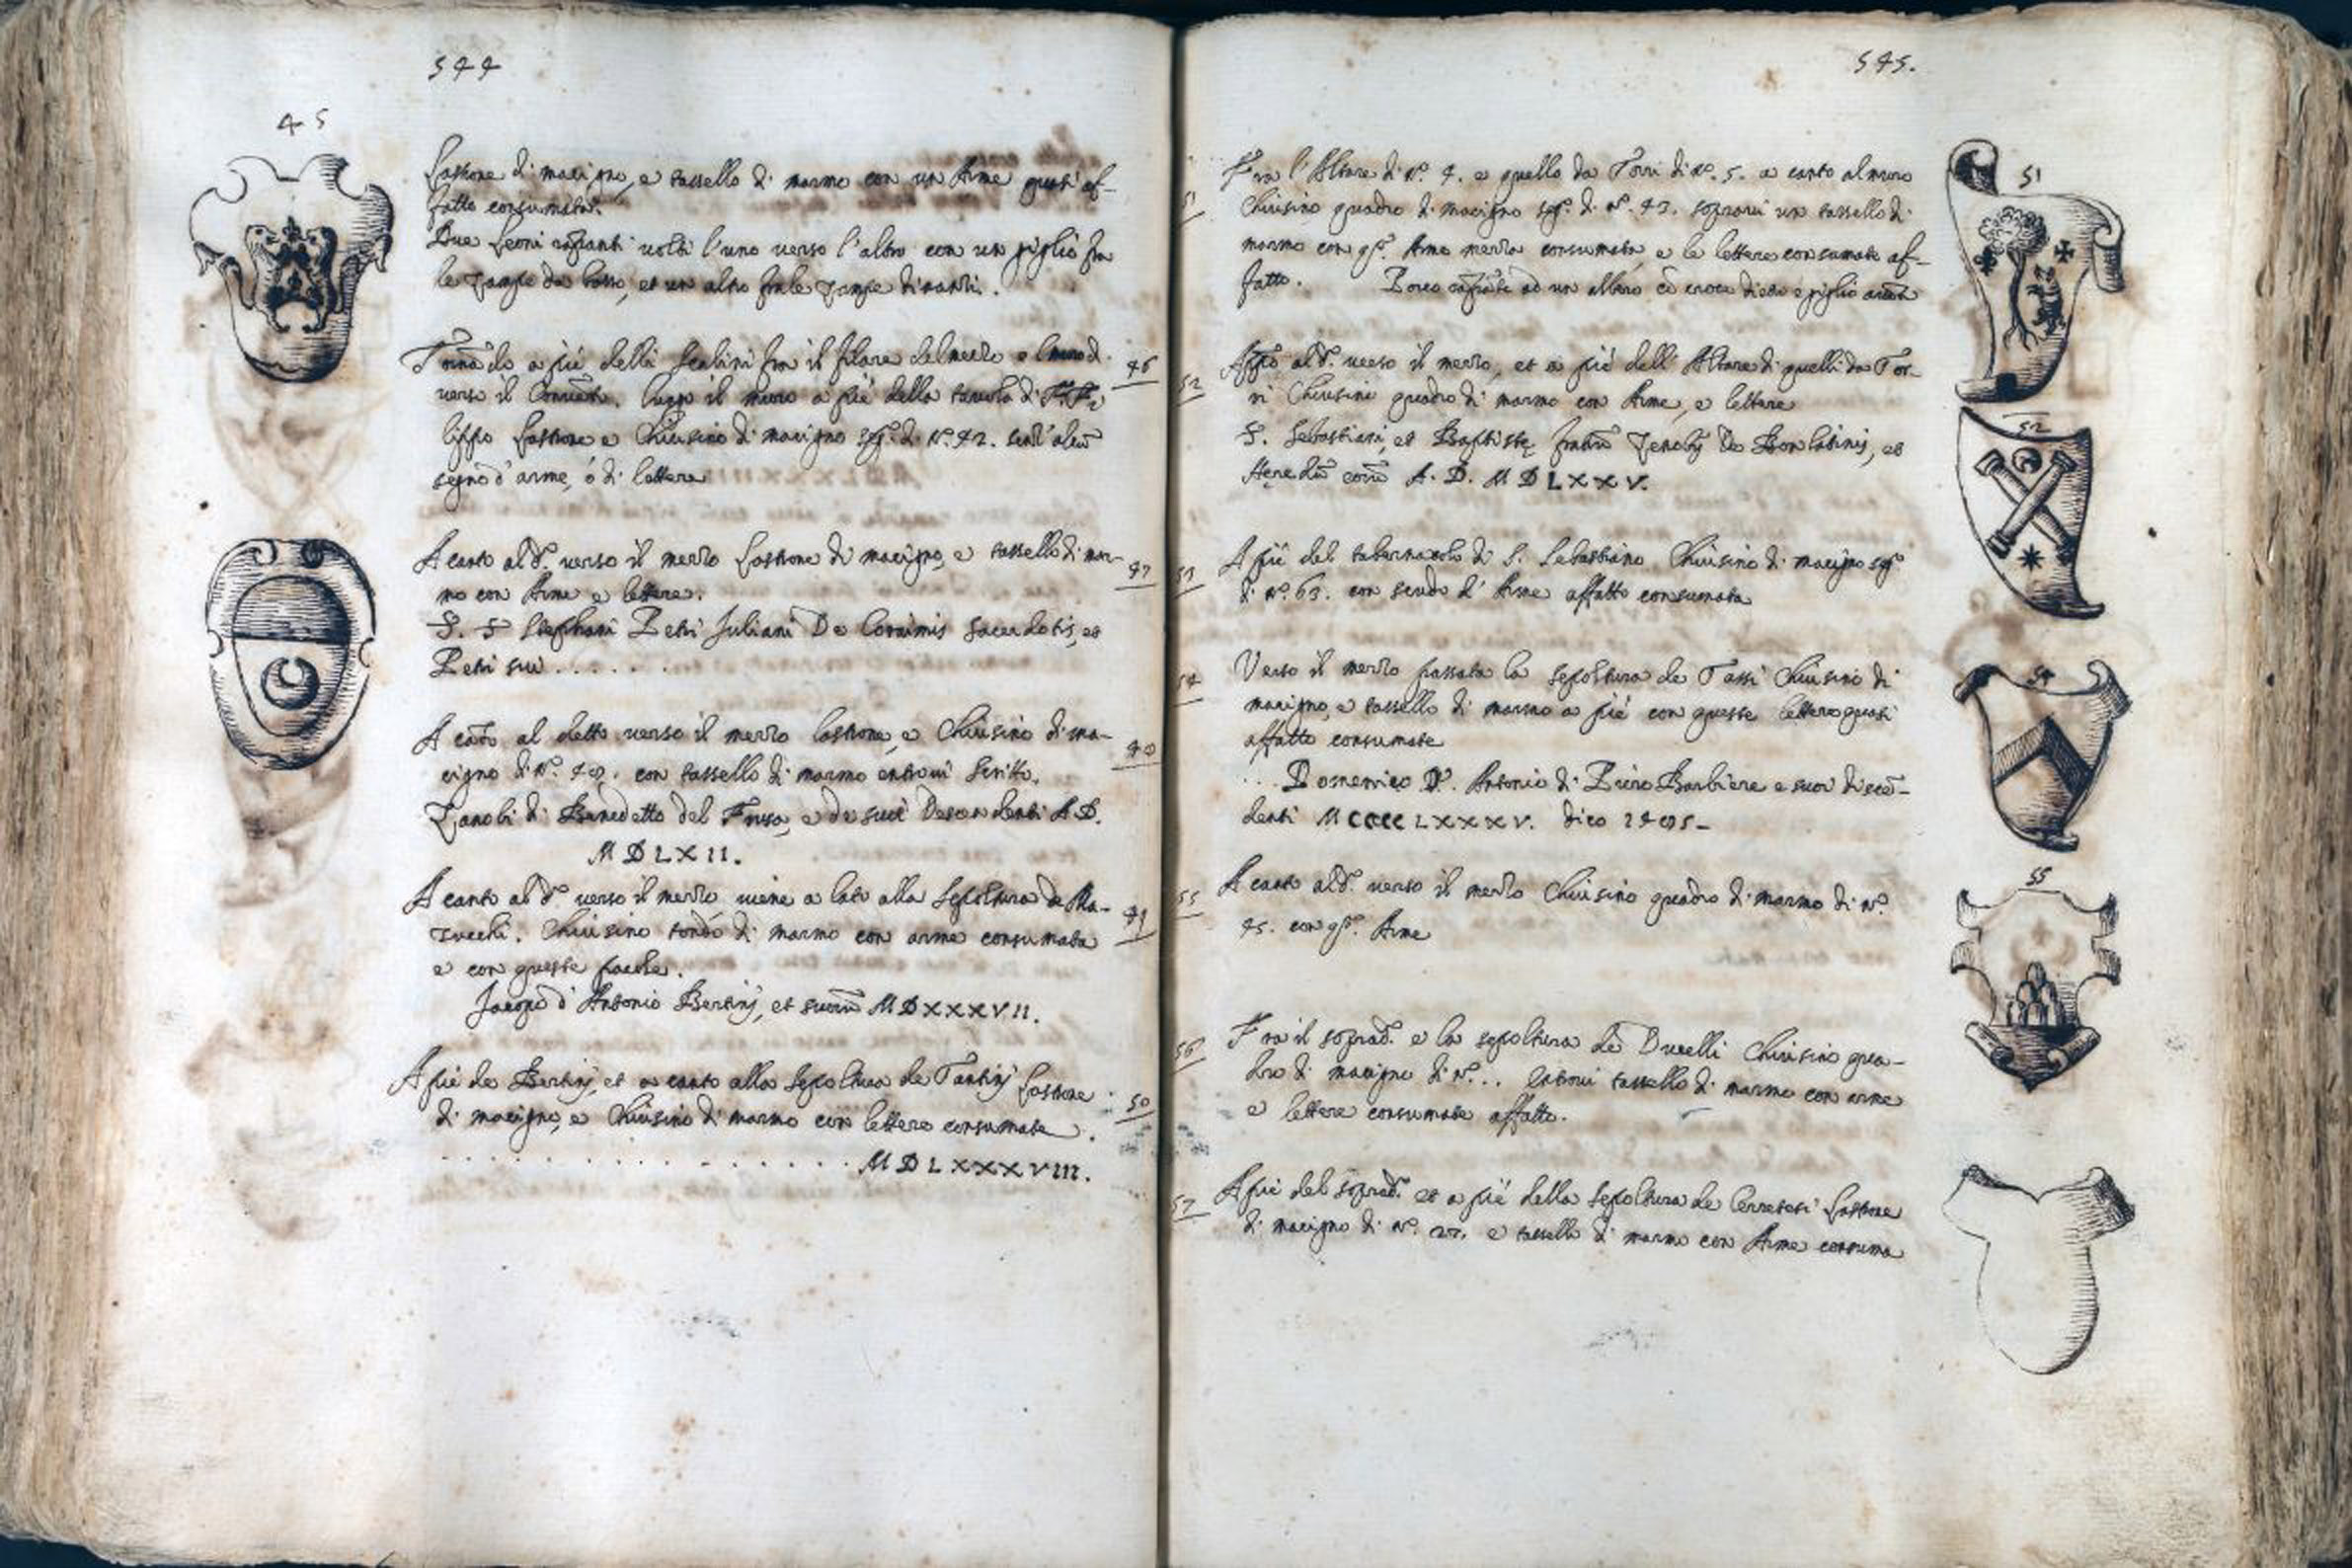 544
45
Lastrone di macigno, e tassello di marmo con un Arme quasi af-
fatto consumata.
Due Leoni rapanti volti l'uno verso l'altro con un giglio fra
le zampe da basso, et un altro fra le zampe dinanzi.
Tornādo a piè delli Scalini fra il filare del mezzo e l muro d.
verso il Convēto. lungo il muro a piè della tavola di F. Fi
lippo Lastrone e Chiusino di macigno seg.º di Nº. 42. senz'alcū
segno d'arme, ò di lettere
46
A canto al d.º verso il mezzo Lastrone di macigno, e tassello di mar-
mo con Arme e lettere.
47
S. S Stephani Petri Juliani De Corsinis sacerdotis, et
Petri sui . . . . . .
A cāto al detto verso il mezzo lastrone, e Chiusino di ma-
cigno di Nº. 49. con tassello di marmo entrovi scritto.
48
Zanobi di Benedetto del Frusa, e de suoi Descendenti A D.
M D L X I I .
A canto al d.º verso il mezzo viene a lato alla Sepoltura de Ma-
zzuchi. Chiusino tondo di marmo con arme consumata
49
e con queste parole.
Jacopo d'Antonio Bertinj, et suorū M D X X X V I I .
A piè de Bertinj, et a canto alla Sepoltura de Tantinj Lastrone
di macigno, e Chiusino di marmo con lettere consumate .
50
. . . . . . . . . . . . . . M D L X X X V III.
545.
51
Fra l'Altare di Nº. 4. e quello da Torri di Nº. 5. a canto al muro
Chiusino quadro di macigno seg.º di Nº. 43. sopravi un tassello di
marmo con q.sta Arme mezza consumata, e le lettere consumate af-
fatto. Porco rapante ad un albero cō croce dietro e giglio avāti
51
52
Appiò al d.º verso il mezzo, et a piè dell'Altare di quelli da Tor-
ri Chiusino quadro di marmo con Arme, e lettere
S. Sebastiani, et Baptistę fratrū Zenobij De Bonlatinis, et
Heredū eorū A. D. M D L X X V.
52
53
A piè del tabernacolo di S. Sebastiano Chiusino di macigno seg.º
di Nº. 63. con scudo d'Arme affatto consumata
54
Verso il mezzo passata la sepoltura de Tassi Chiusino di
macigno, e tassello di marmo a piè con queste lettere quasi
affatto consumate
. . . Domenico D. Antonio di Piero Barbiere e suoi discē-
denti M CCCC L X X X V. dico 1485-
54
55
A canto al d.º verso il mezzo Chiusino quadro di marmo di Nº.
45. con q.sta Arme
55
56
Fra il soprad.º e la sepoltura de Ducelli Chiusino qua-
dro di macigno di Nº... entrovi tassello di marmo con arme
e lettere consumate affatto.
57
A piè del soprad.º et a piè della Sepoltura de Cerretesi Lastrone
di macigno di Nº. 27. e tassello di marmo con Arme consuma